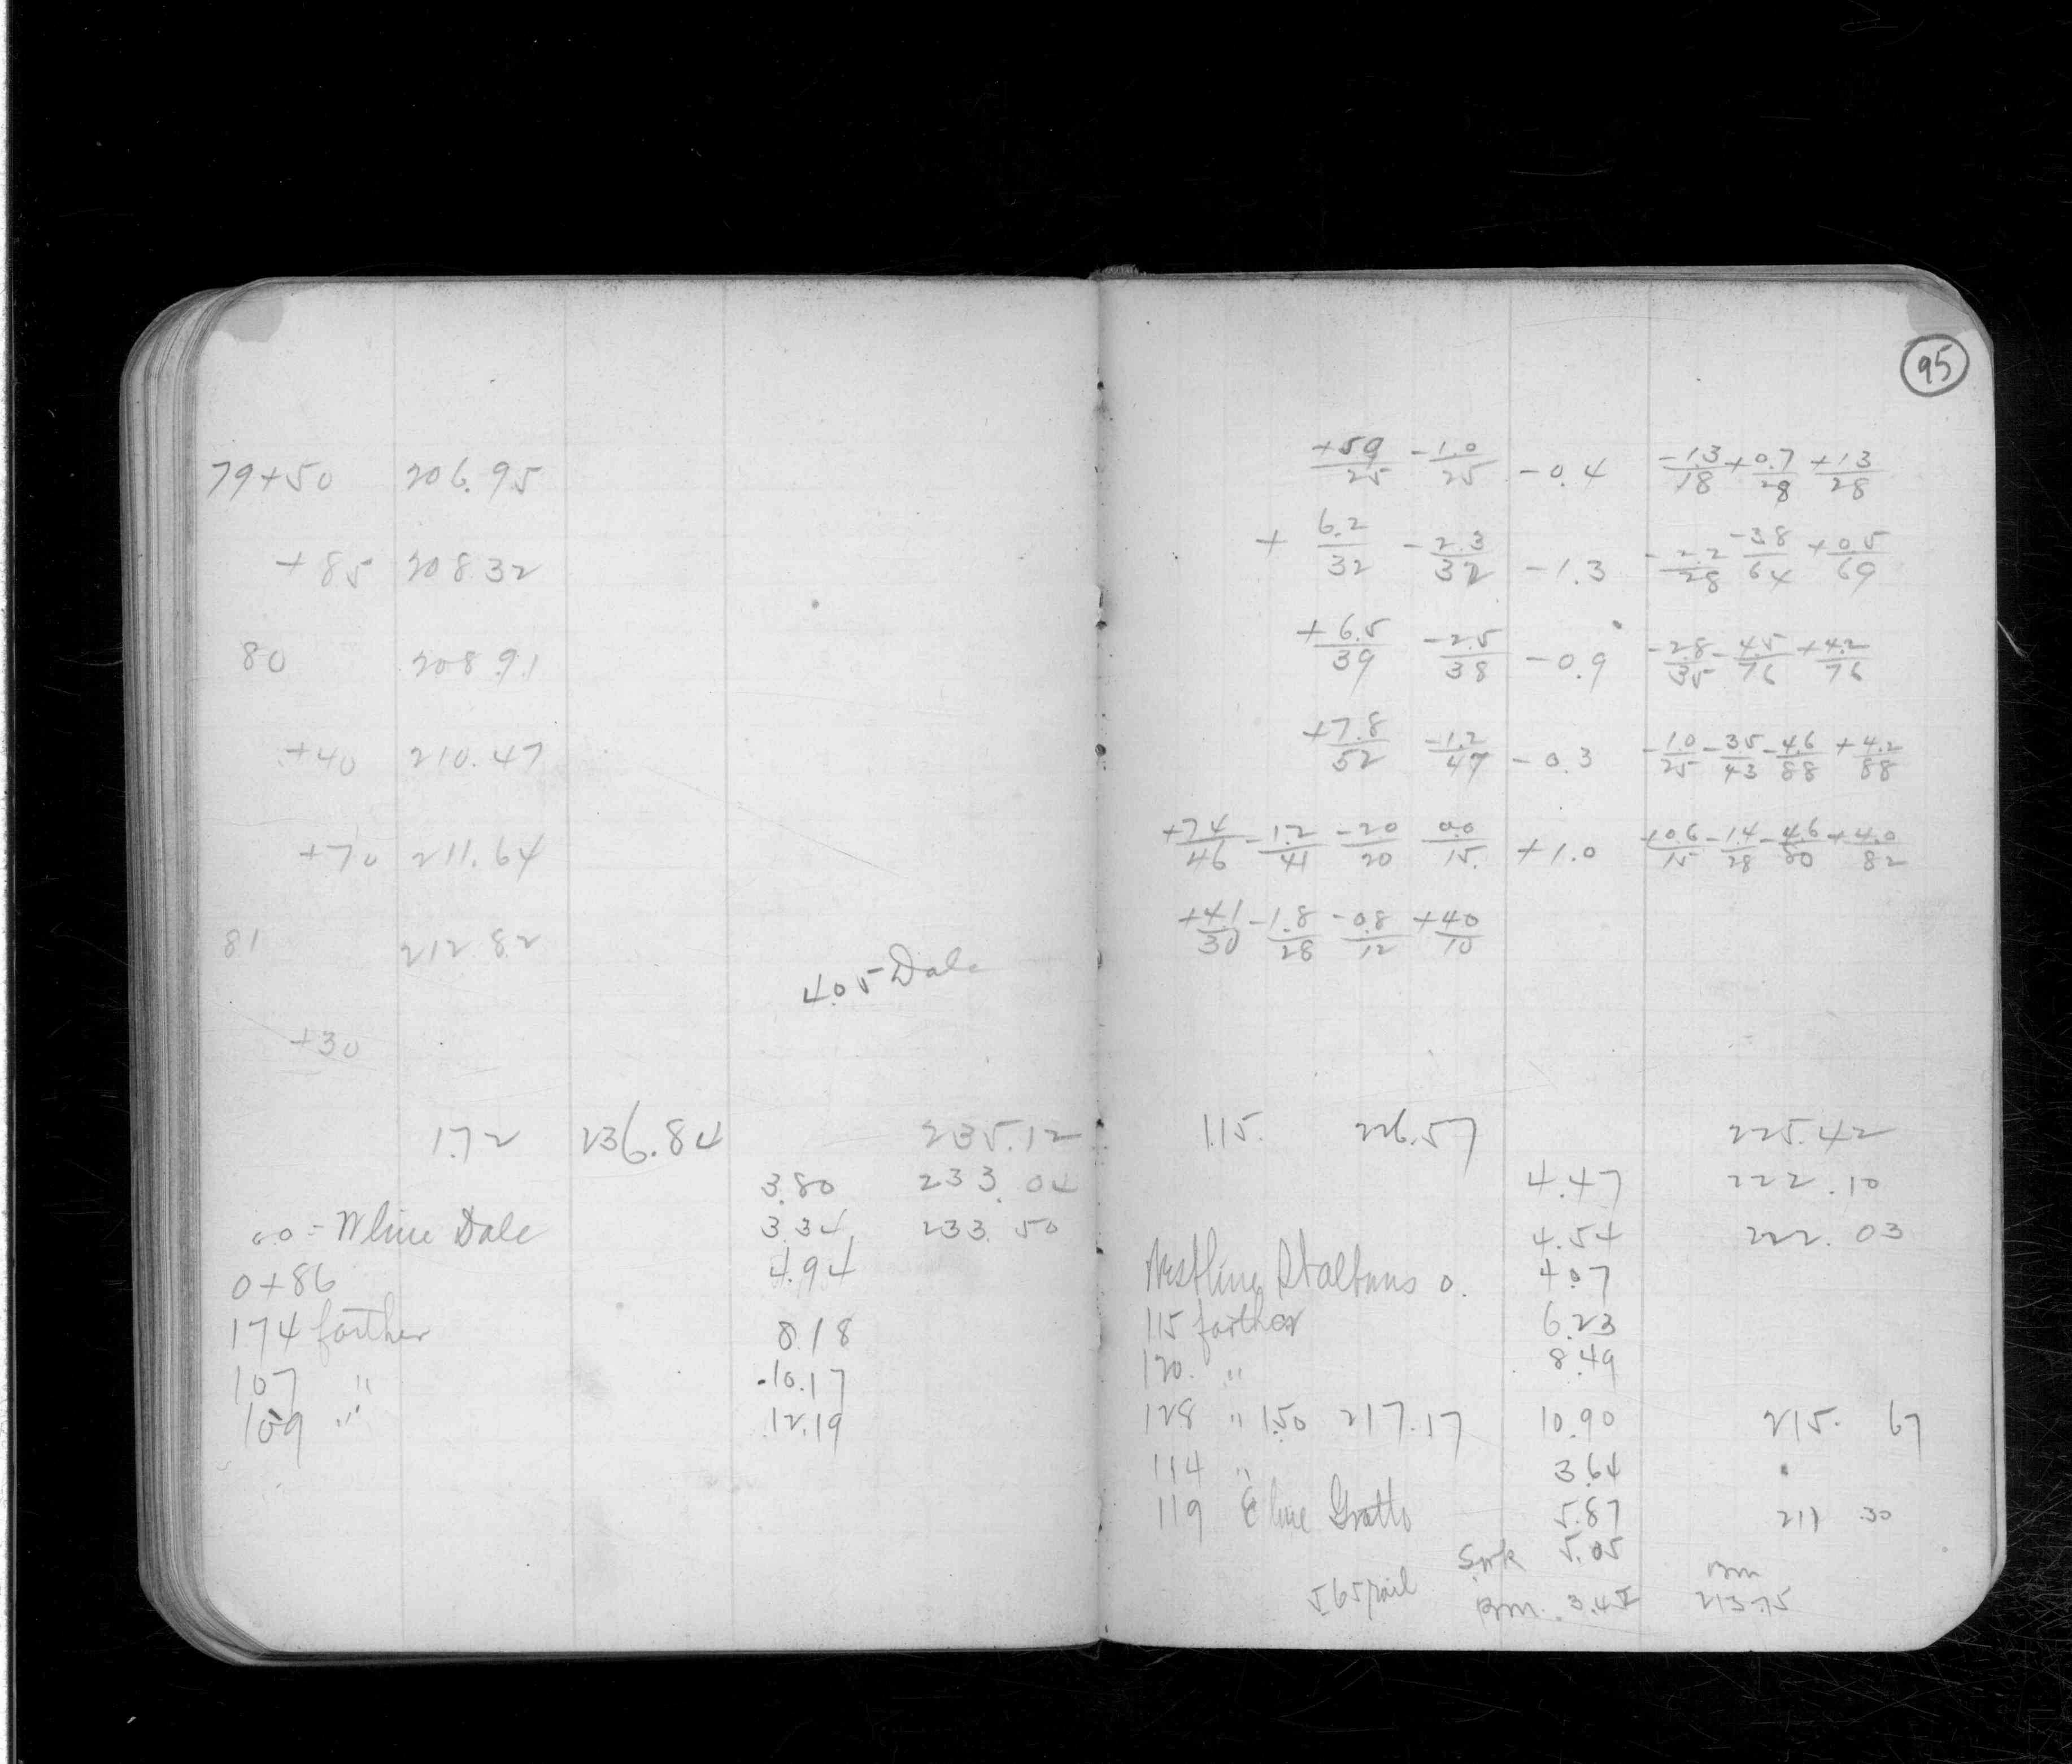 79+50 206.95
+85 208.32
80 208.91
+40 210.47
+70 211.64
81 212.82
4.05 Dale
+30
1.72 236.84 235.12
3.80 233.04
0.0 = W line Dale 3.34 233.50
0+86 4.94
174 farther 8.18
107 " 10.17
109 " 12.19
95
+5.9/25 -1.0/25 -0.4 -1.3/18 +0.7/28 +1.3/28
+6.2/32 -2.3/32 -1.3 -2.2/28 -3.8/64 +0.5/69
+6.5/39 -2.5/38 -0.9 -2.8/35 -4.5/76 +4.2/76
+7.8/52 -1.2/47 -0.3 -1.0/25 -3.5/43 -4.6/88 +4.2/88
+7.4/46 -1.2/41 -2.0/20 0.0/15 +1.0 +0.6/15 -1.4/28 -4.6/80 +4.0/82
+4.1/30 -1.8/28 -0.8/12 +4.0/10
1.15 226.57 225.42
4.47 222.10
4.54 222.03
West line St albans 0. 4.07
115 farther 6.23
120 " 8.49
128 " 1.50 217.17 10.90 215.67
114 " 3.64
119 E line Gratto 5.87 211.30
5.05
5.65 rail Bm. 3.42 Bm 213.75